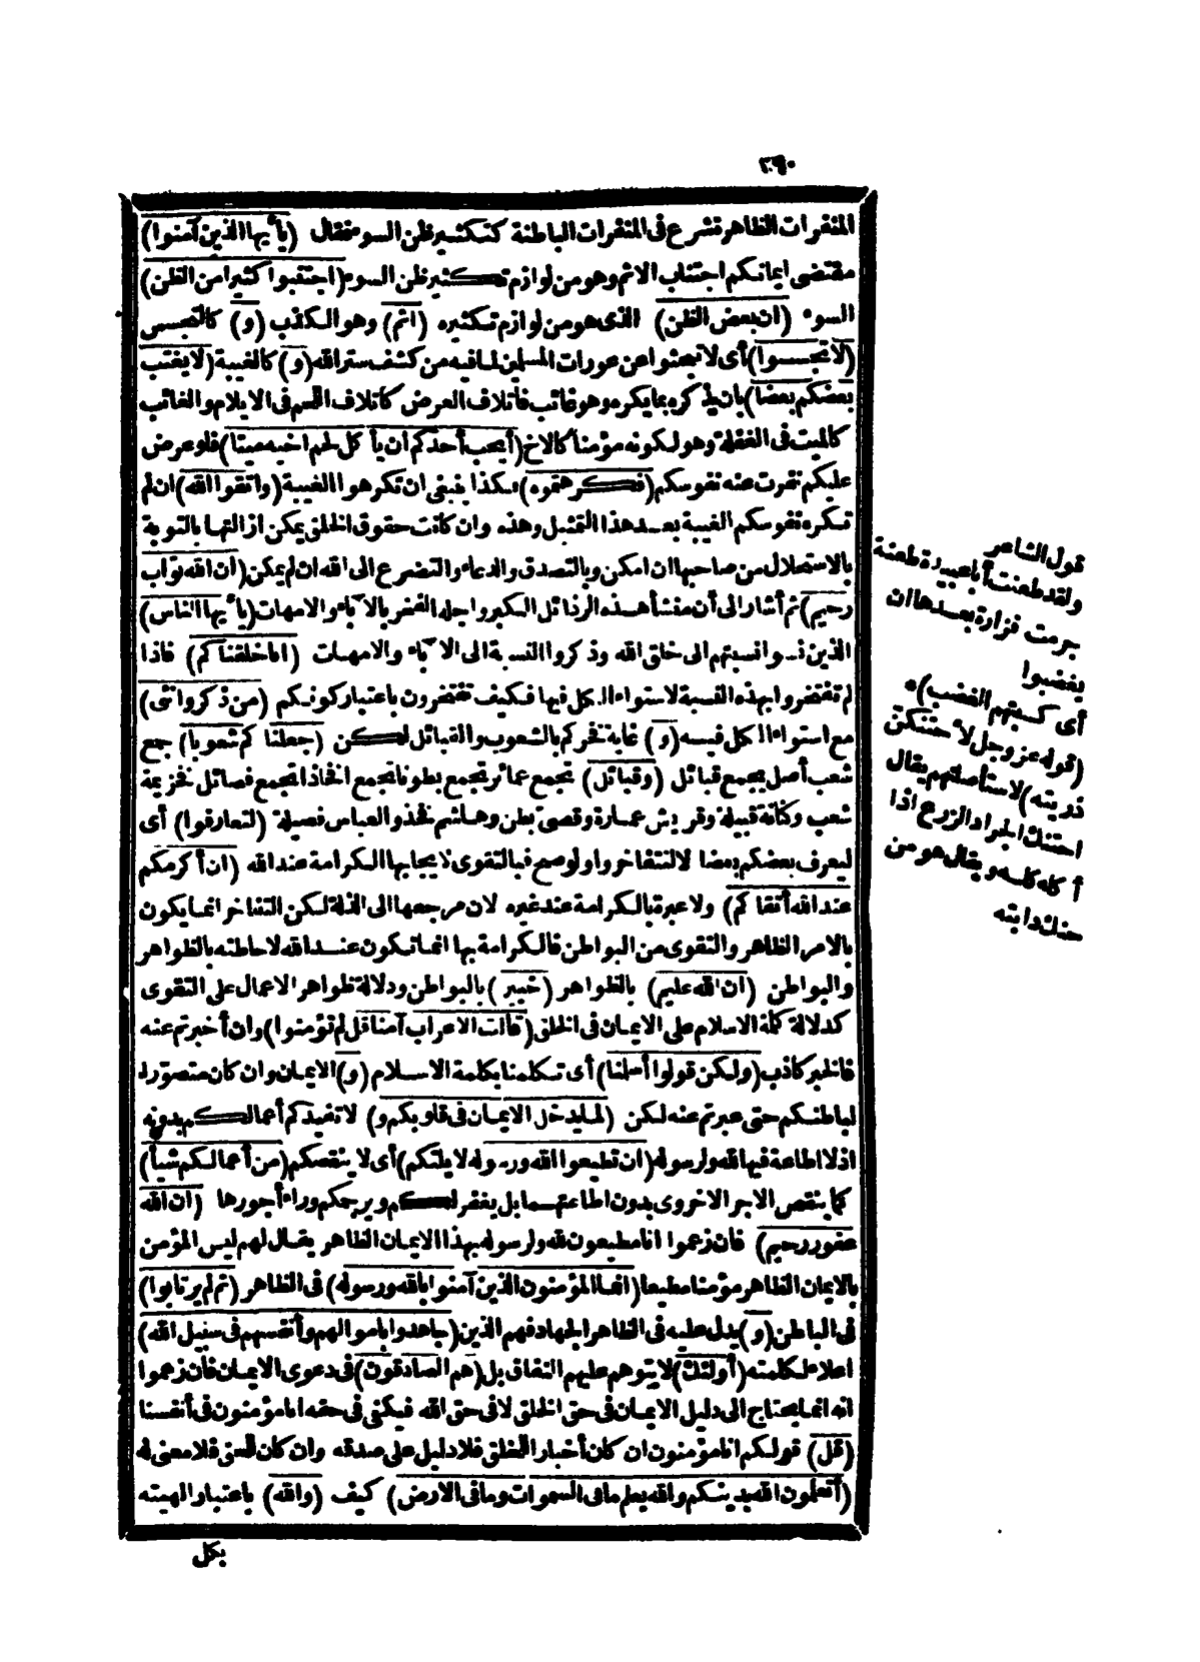 ٢٩٠
المنفرات الظاهرة شرع فى المنفرات الباطنة كتكثير ظن السوء فقال (يا أيها الذين آمنوا)
مقتضى ايمانكم اجتناب الاثم وهو من لوازم تكثير ظن السوء (اجتنبوا كثيرا من الظن)
السوء (ان بعض الظن) الذى هو من لوازم تكثيره (اثم) وهو الكذب (و) كالتجسس
(لا تجسسوا) أى لا تبحثوا عن عورات المسلمين لما فيه من كشف ستر الله (و) كالغيبة (لا يغتب
بعضكم بعضا) بان يذكره بما يكره وهو غائب فاتلاف العرض كاتلاف الجسم فى الايلام والغائب
كالميت فى الغفلة وهو لكونه مؤمنا كالاخ (أيحب أحدكم ان يأكل لحم اخيه ميتا) فلو عرض
عليكم نفرت عنه نفوسكم (فكرهتموه) فكذا ينبغى ان تكرهوا الغيبة (واتقوا الله) ان لم
تكره نفوسكم الغيبة بعد هذا التمثيل وهذه وان كانت حقوق الخلق يمكن ازالتها بالتوبة
بالاستحلال من صاحبها ان امكن وبالتصدق والدعاء والتضرع الى الله ان لم يمكن (ان الله تواب
رحيم) ثم أشار الى أن منشأ هذه الرذائل الكبر واجله الفخر بالآباء والامهات (يا أيها الناس)
الذين نسوا نسبتهم الى خلق الله وذكروا النسبة الى الآباء والامهات (انا خلقناكم) فاذا
لم تفتخروا بهذه النسبة لاستواء الكل فيها فكيف تفتخرون باعتبار كونكم (من ذكر وانثى)
مع استواء الكل فيه (و) غاية فخركم بالشعوب والقبائل لكن (جعلناكم شعوبا) جمع
شعب أصل يجمع قبائل (وقبائل) تجمع عمائر تجمع بطونا تجمع افخاذا تجمع فصائل نخزيمة
شعب وكنانة قبيلة وقريش عمارة وقصىّ بطن وهاشم فخذ والعباس فصيلة (لتعارفوا) أى
ليعرف بعضكم بعضا لا للتفاخر ولو صح فبالتقوى لايجابها الكرامة عند الله (ان أكرمكم
عند الله أتقاكم) ولا عبرة بالكرامة عند غيره لان مرجعها الى الذلة لكن التفاخر انما يكون
بالامر الظاهر والتقوى من البواطن فالكرامة بها انما تكون عند الله لاحاطته بالظواهر
والبواطن (ان الله عليم) بالظواهر (خبير) بالبواطن ودلالة ظواهر الاعمال على التقوى
كدلالة كلمة الاسلام على الايمان فى الخلق (قالت الاعراب آمنا قل لم تؤمنوا) وان أخبرتم عنه
فالخبر كاذب (ولكن قولوا أسلمنا) أى تكلمنا بكلمة الاسلام (و) الايمان وان كان متصورا
لباطنكم حتى عبرتم عنه لكن (لما يدخل الايمان فى قلوبكم و) لا تفيدكم أعمالكم بدونه
اذ لا اطاعة فيها لله ولرسوله (ان تطيعوا الله ورسوله لا يلتكم) أى لا ينقصكم (من أعمالكم شيأ)
كما ينقص الاجر الاخروى بدون اطاعتهما بل يغفر لكم ويرحمكم وراء أجورها (ان الله
غفور رحيم) فان زعموا انا مطيعون لله ولرسوله بهذا الايمان الظاهر يقال لهم ليس المؤمن
بالايمان الظاهر مؤمنا مطيعا (انما المؤمنون الذين آمنوا بالله ورسوله) فى الظاهر (ثم لم يرتابوا)
فى الباطن (و) يدل عليه فى الظاهر الجهاد فهم الذين (جاهدوا باموالهم وأنفسهم فى سبيل الله)
اعلاء لكلمته (أولئك) لا يتوهم عليهم النفاق بل (هم الصادقون) فى دعوى الايمان فان زعموا
انه انما يحتاج الى دليل الايمان فى حق الخلق لا فى حق الله فيكفى فى حقه انا مؤمنون فى أنفسنا
(قل) قولكم انا مؤمنون ان كان أخبار الخلق فلا دليل على صدقه وان كان للحق فلا معنى له
(أتعلمون الله بدينكم والله يعلم ما فى السموات وما فى الارض) كيف (والله) باعتبار الهيته
بكل
قول الشاعر
ولقد طعنت أبا عبيدة طعنة
جرمت فزارة بعدها ان
يغضبوا
أى كسبتهم الغضب)*
(قوله عز وجل لأحتنكنّ
ذريته) لاستأصلنهم يقال
احتنك الجراد الزرع اذا
أكله كله ويقال هو من
حنك دابته